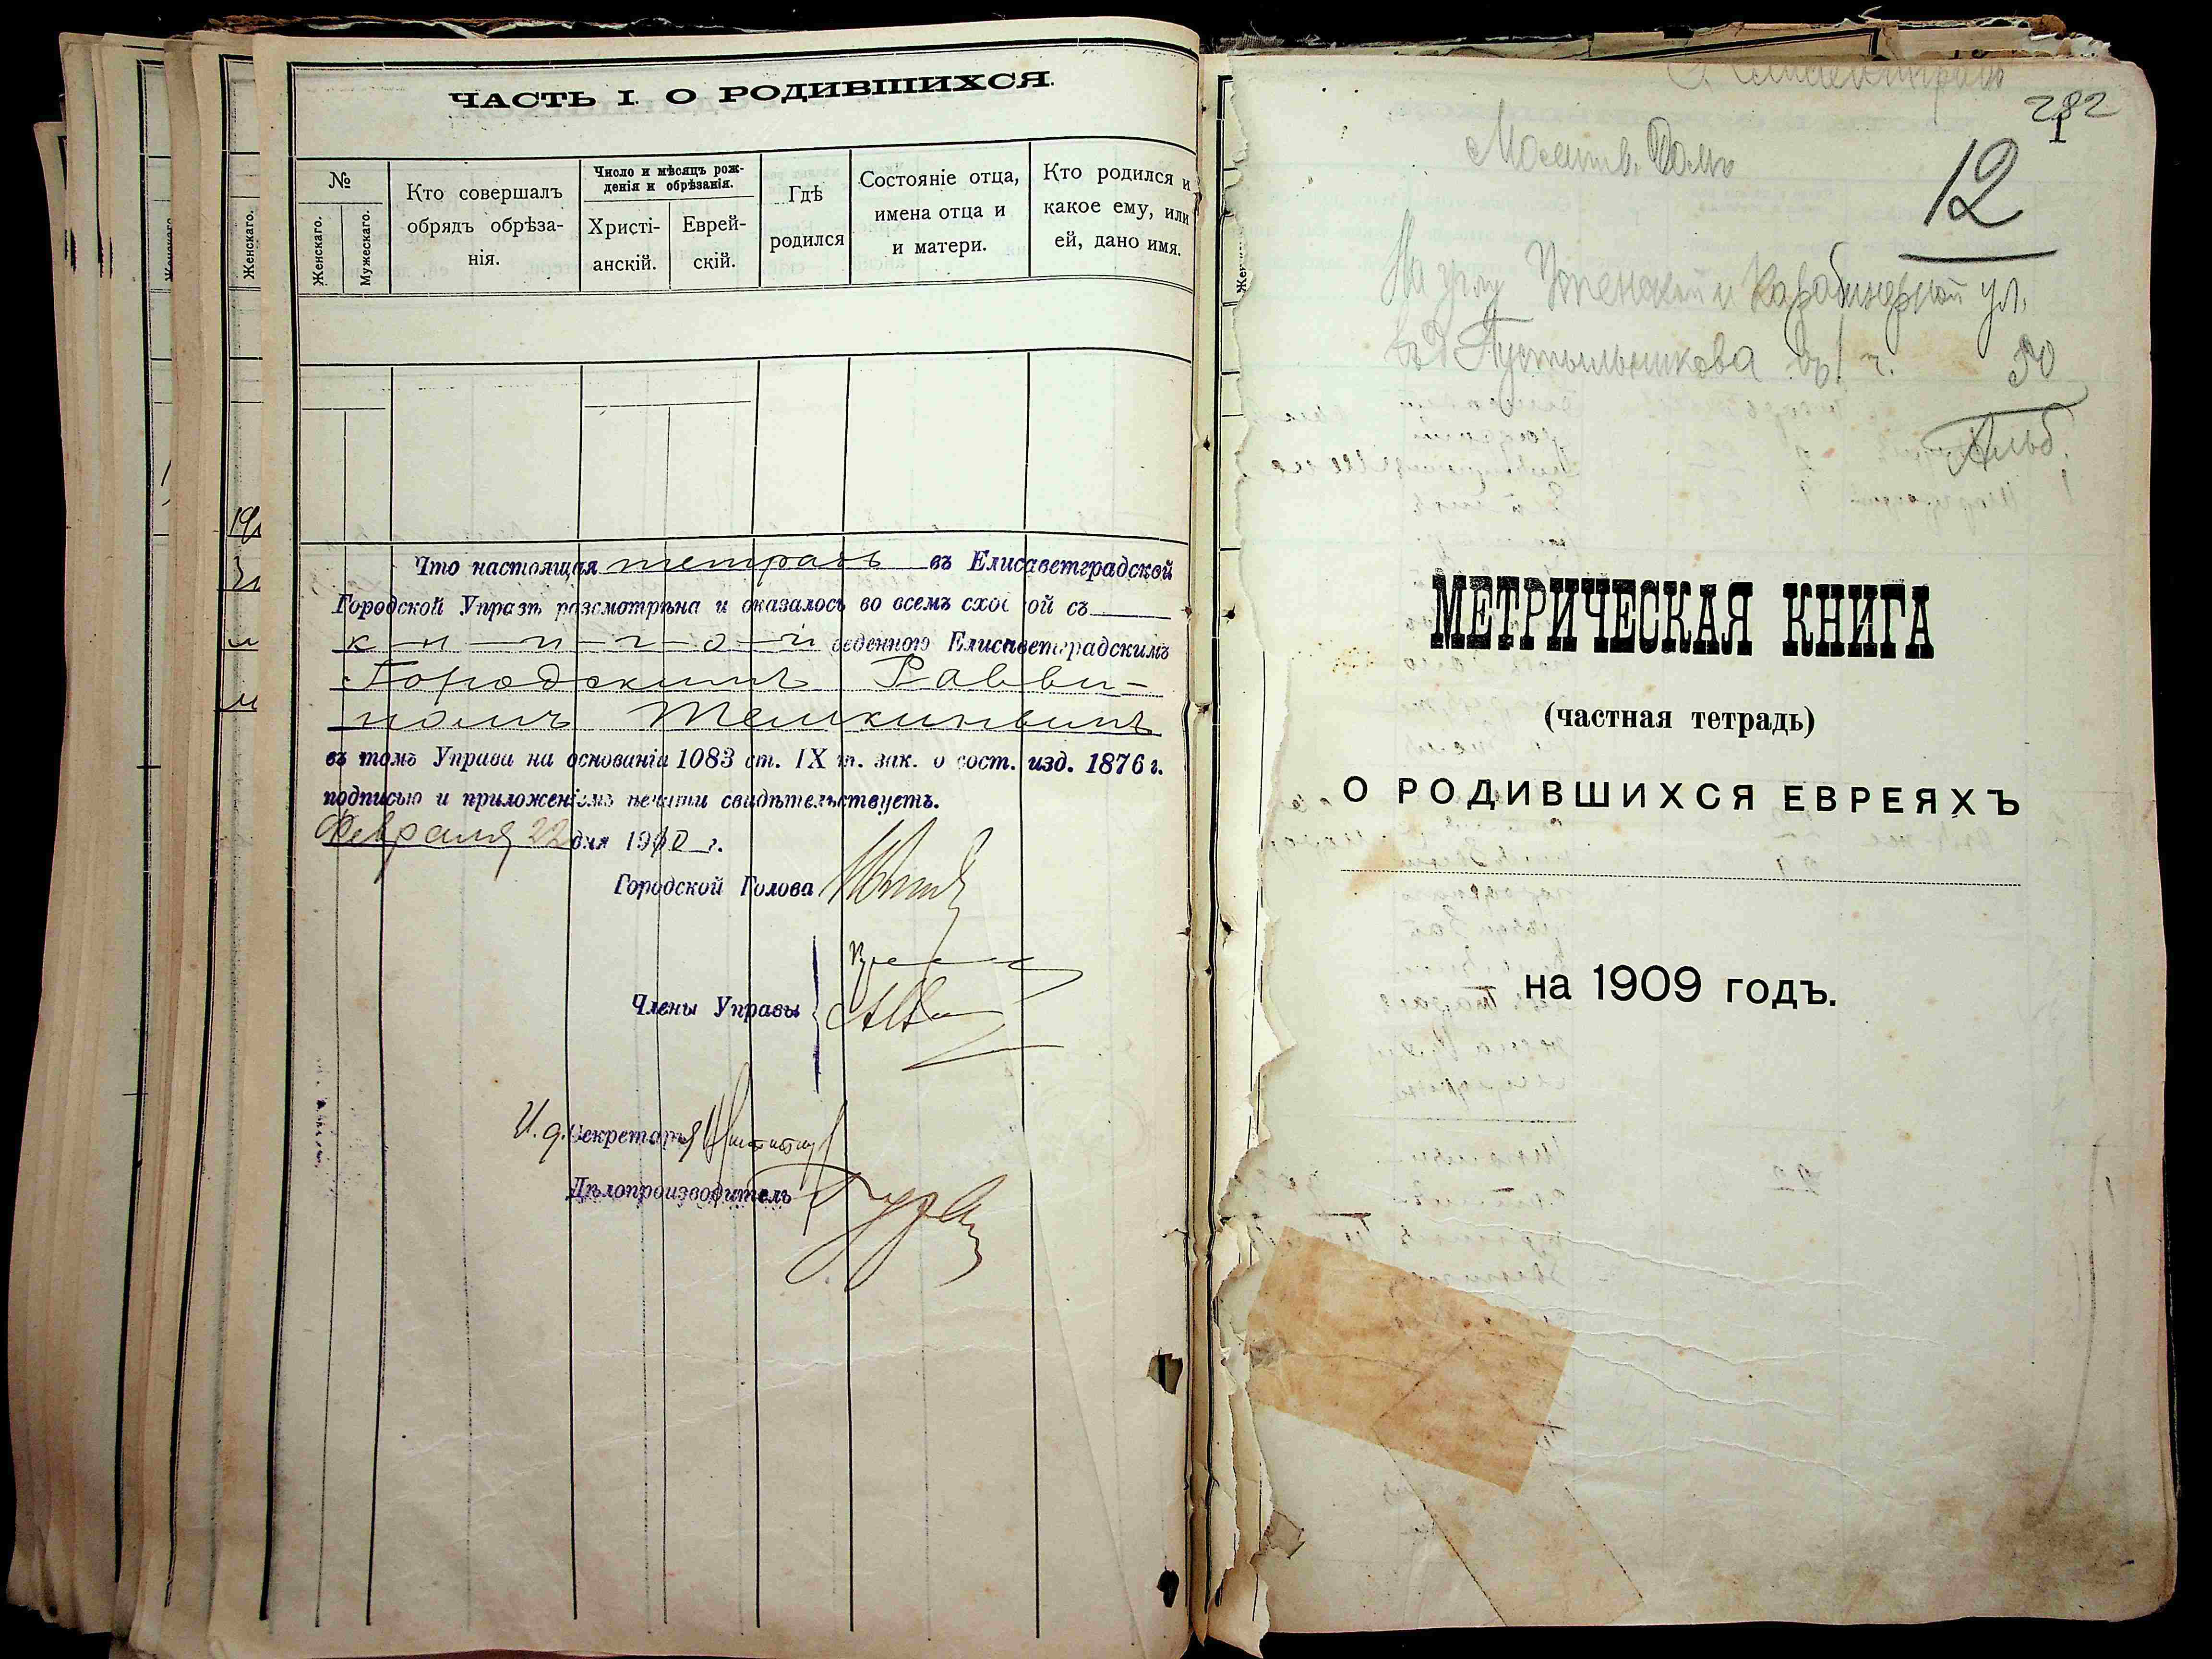 ЧАСТЬ I. О РОДИВШИХСЯ.
№
Женскаго.
Мужескаго.
Кто совершалъ
обрядъ обрѣза-
нія.
Число и мѣсяцъ рож-
денія и обрѣзанія.
Христі-
анскій.
Еврей-
скій.
Гдѣ
родился
Состояніе отца,
имена отца и
и матери.
Кто родился и
какое ему, или
ей, дано имя.
Что настоящая тетрадь въ Елисаветградской
Городской Управѣ разсмотрѣна и оказалось во всемъ сход ой съ
к-н-и-г-о-й веденною Елисаветградскимъ
Городскимъ Равви-
номъ Темкинымъ
въ томъ Управа на основаніи 1083 ст. IX т. зак. о сост. изд. 1876 г.
подписью и приложеніемъ печати свидѣтельствуетъ.
Февраля 22 дня 1910 г.
Городской Голова
Члены Управы
И. д. Секретаря
Дѣлопроизводитель
Женскаго.
Женскаго.
г. Елисаветградъ
282
1
Молитв. Домъ
12
На углу и Карабинерной ул.
въ д Пустыльникова въ 1 ч.
50
Альб.
МЕТРИЧЕСКАЯ КНИГА
(частная тетрадь)
О РОДИВШИХСЯ ЕВРЕЯХЪ
на 1909 годъ.